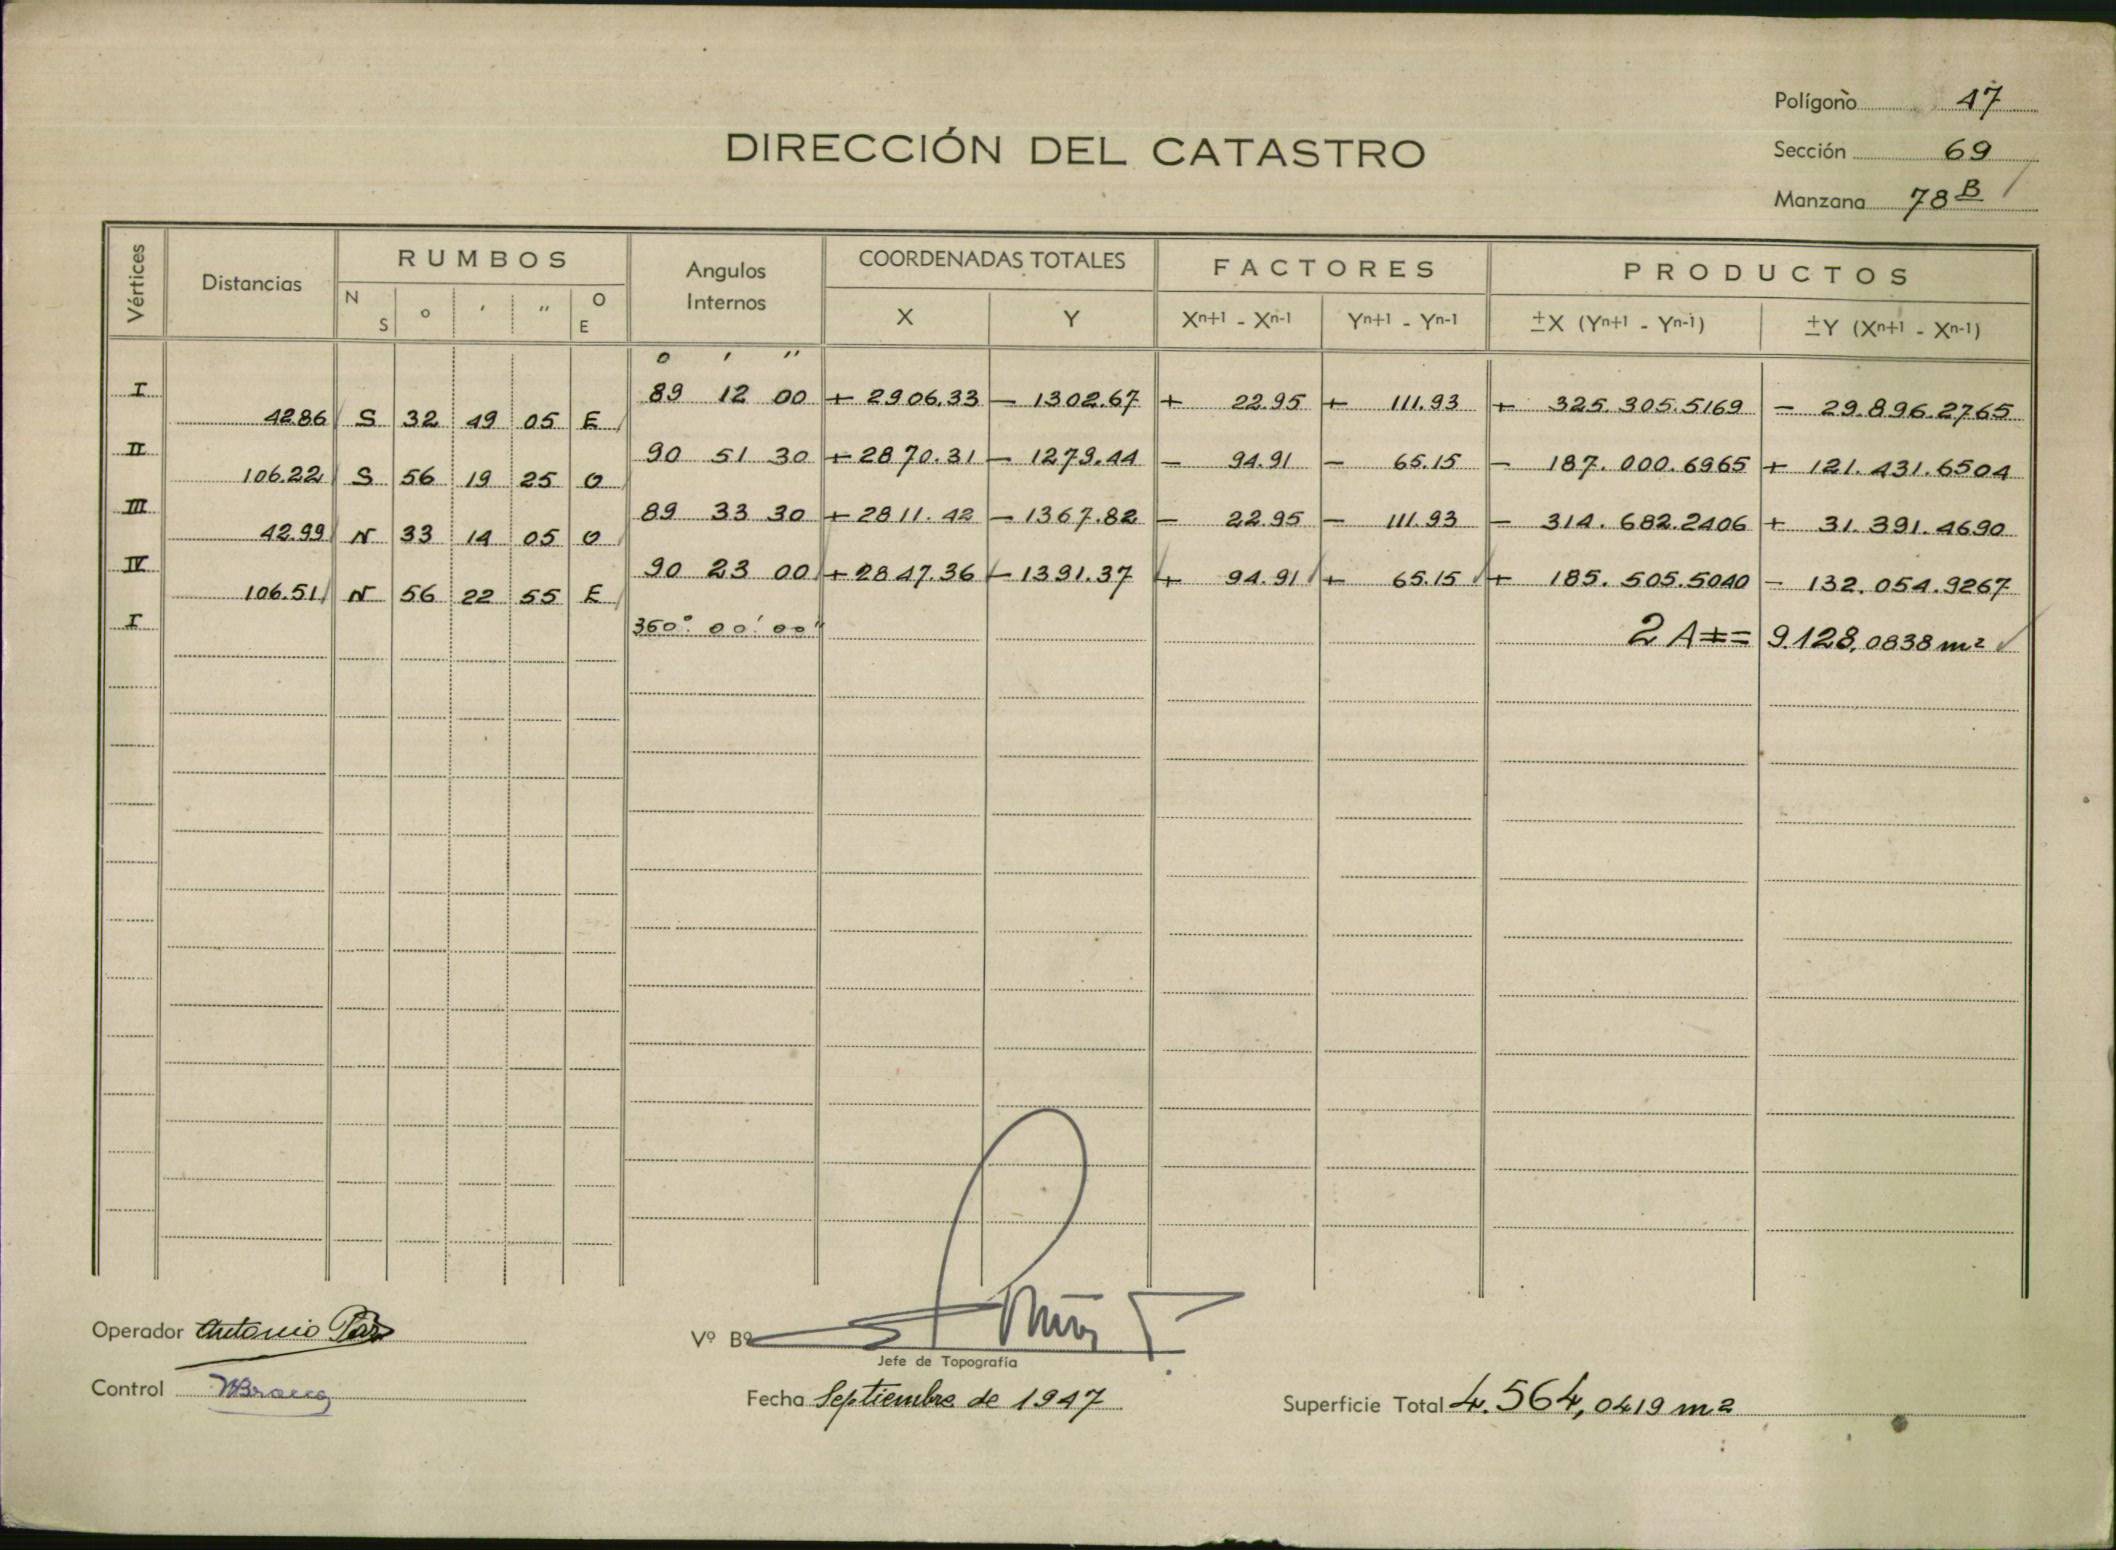 Polígono 47
DIRECCIÓN DEL CATASTRO
Sección 69
Manzana 78 B
Vértices Distancias RUMBOS Angulos Internos COORDENADAS TOTALES FACTORES PRODUCTOS
N S o ' " O E X Y Xn+1 - Xn-1 Yn+1 - Yn-1 ±X (Yn+1 - Yn-1) ±Y (Xn+1 - Xn-1)
o ' "
I 89 12 00 + 2906.33 - 1302.67 + 22.95 + 111.93 + 325.305.5169 - 29.896.2765
42.86 S 32 49 05 E
II 90 51 30 + 2870.31 - 1279.44 - 94.91 - 65.15 - 187.000.6965 + 121.431.6504
106.22 S 56 19 25 O
III 89 33 30 + 2811.42 - 1367.82 - 22.95 - 111.93 - 314.682.2406 + 31.391.4690
42.99 N 33 14 05 O
IV 90 23 00 + 2847.36 - 1391.37 + 94.91 + 65.15 + 185.505.5040 - 132.054.9267
106.51 N 56 22 55 E
I 360° 00' 00" 2 A += 9.128,0838 m2
Operador Antonio Paz
Vº Bº
Jefe de Topografía
Control
Fecha Septiembre de 1947
Superficie Total 4.564,0419 m2